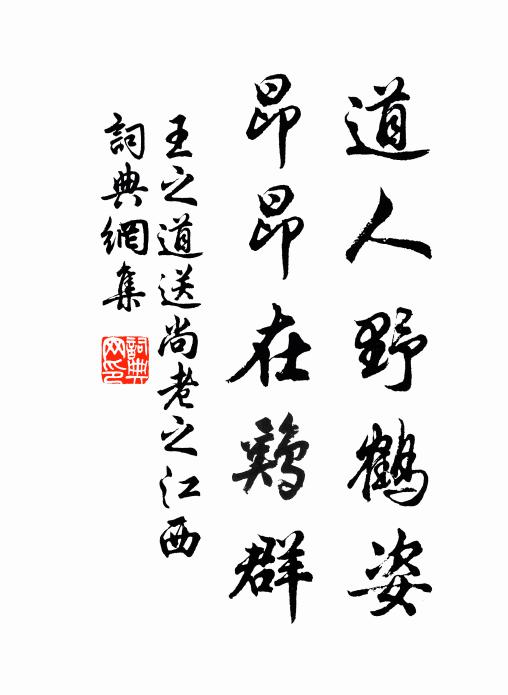 道人野鶴姿
昂昂在鷄群
王之道送尚老之江西
詞典網集
詞典網印